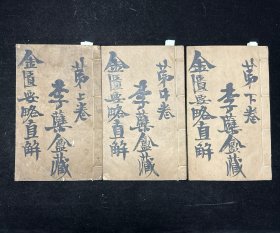 金匱要略直解
李蘖盦藏
第上卷
金匱要略直解
李蘖盦藏
第中卷
金匱要略直解
李蘖盦藏
第下卷